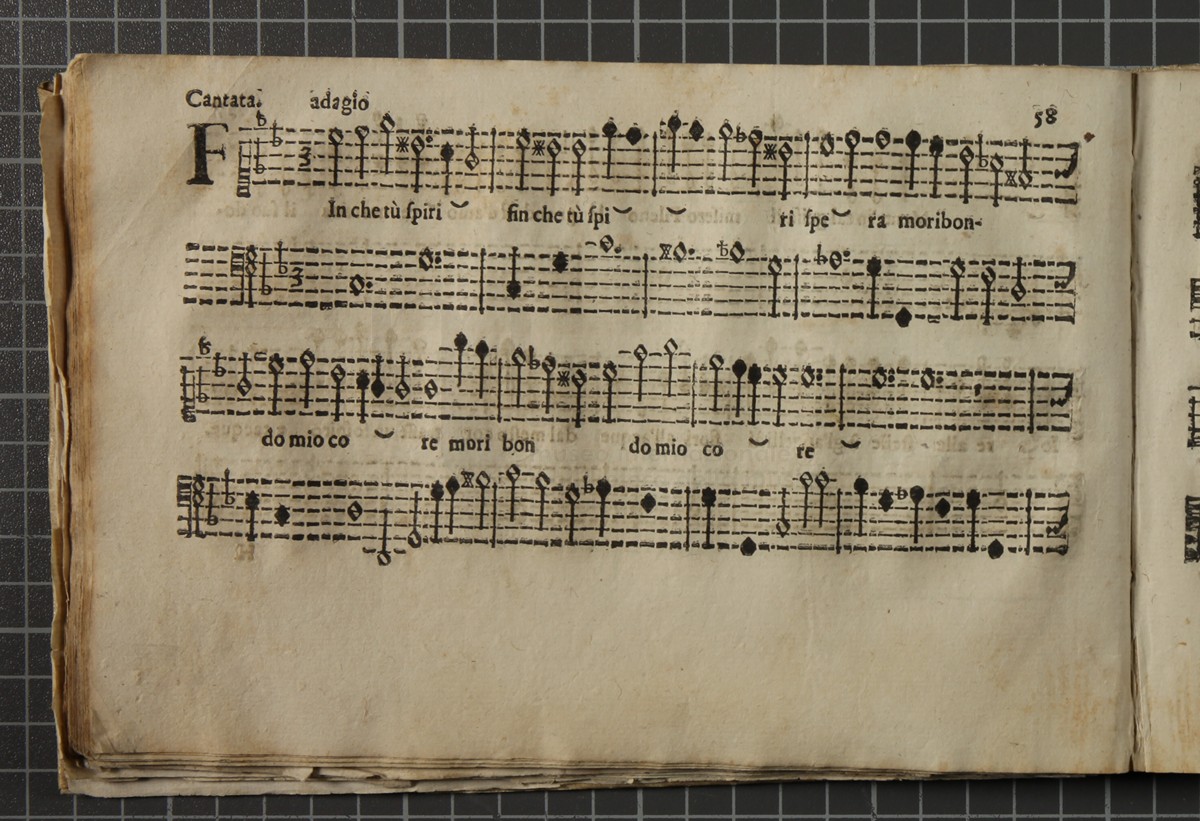 Cantata. adagio 58
FIn che tù ſpiri fin che tù ſpi ri ſpe ra moribon-
3
3
do mio co re mori bon do mio co re